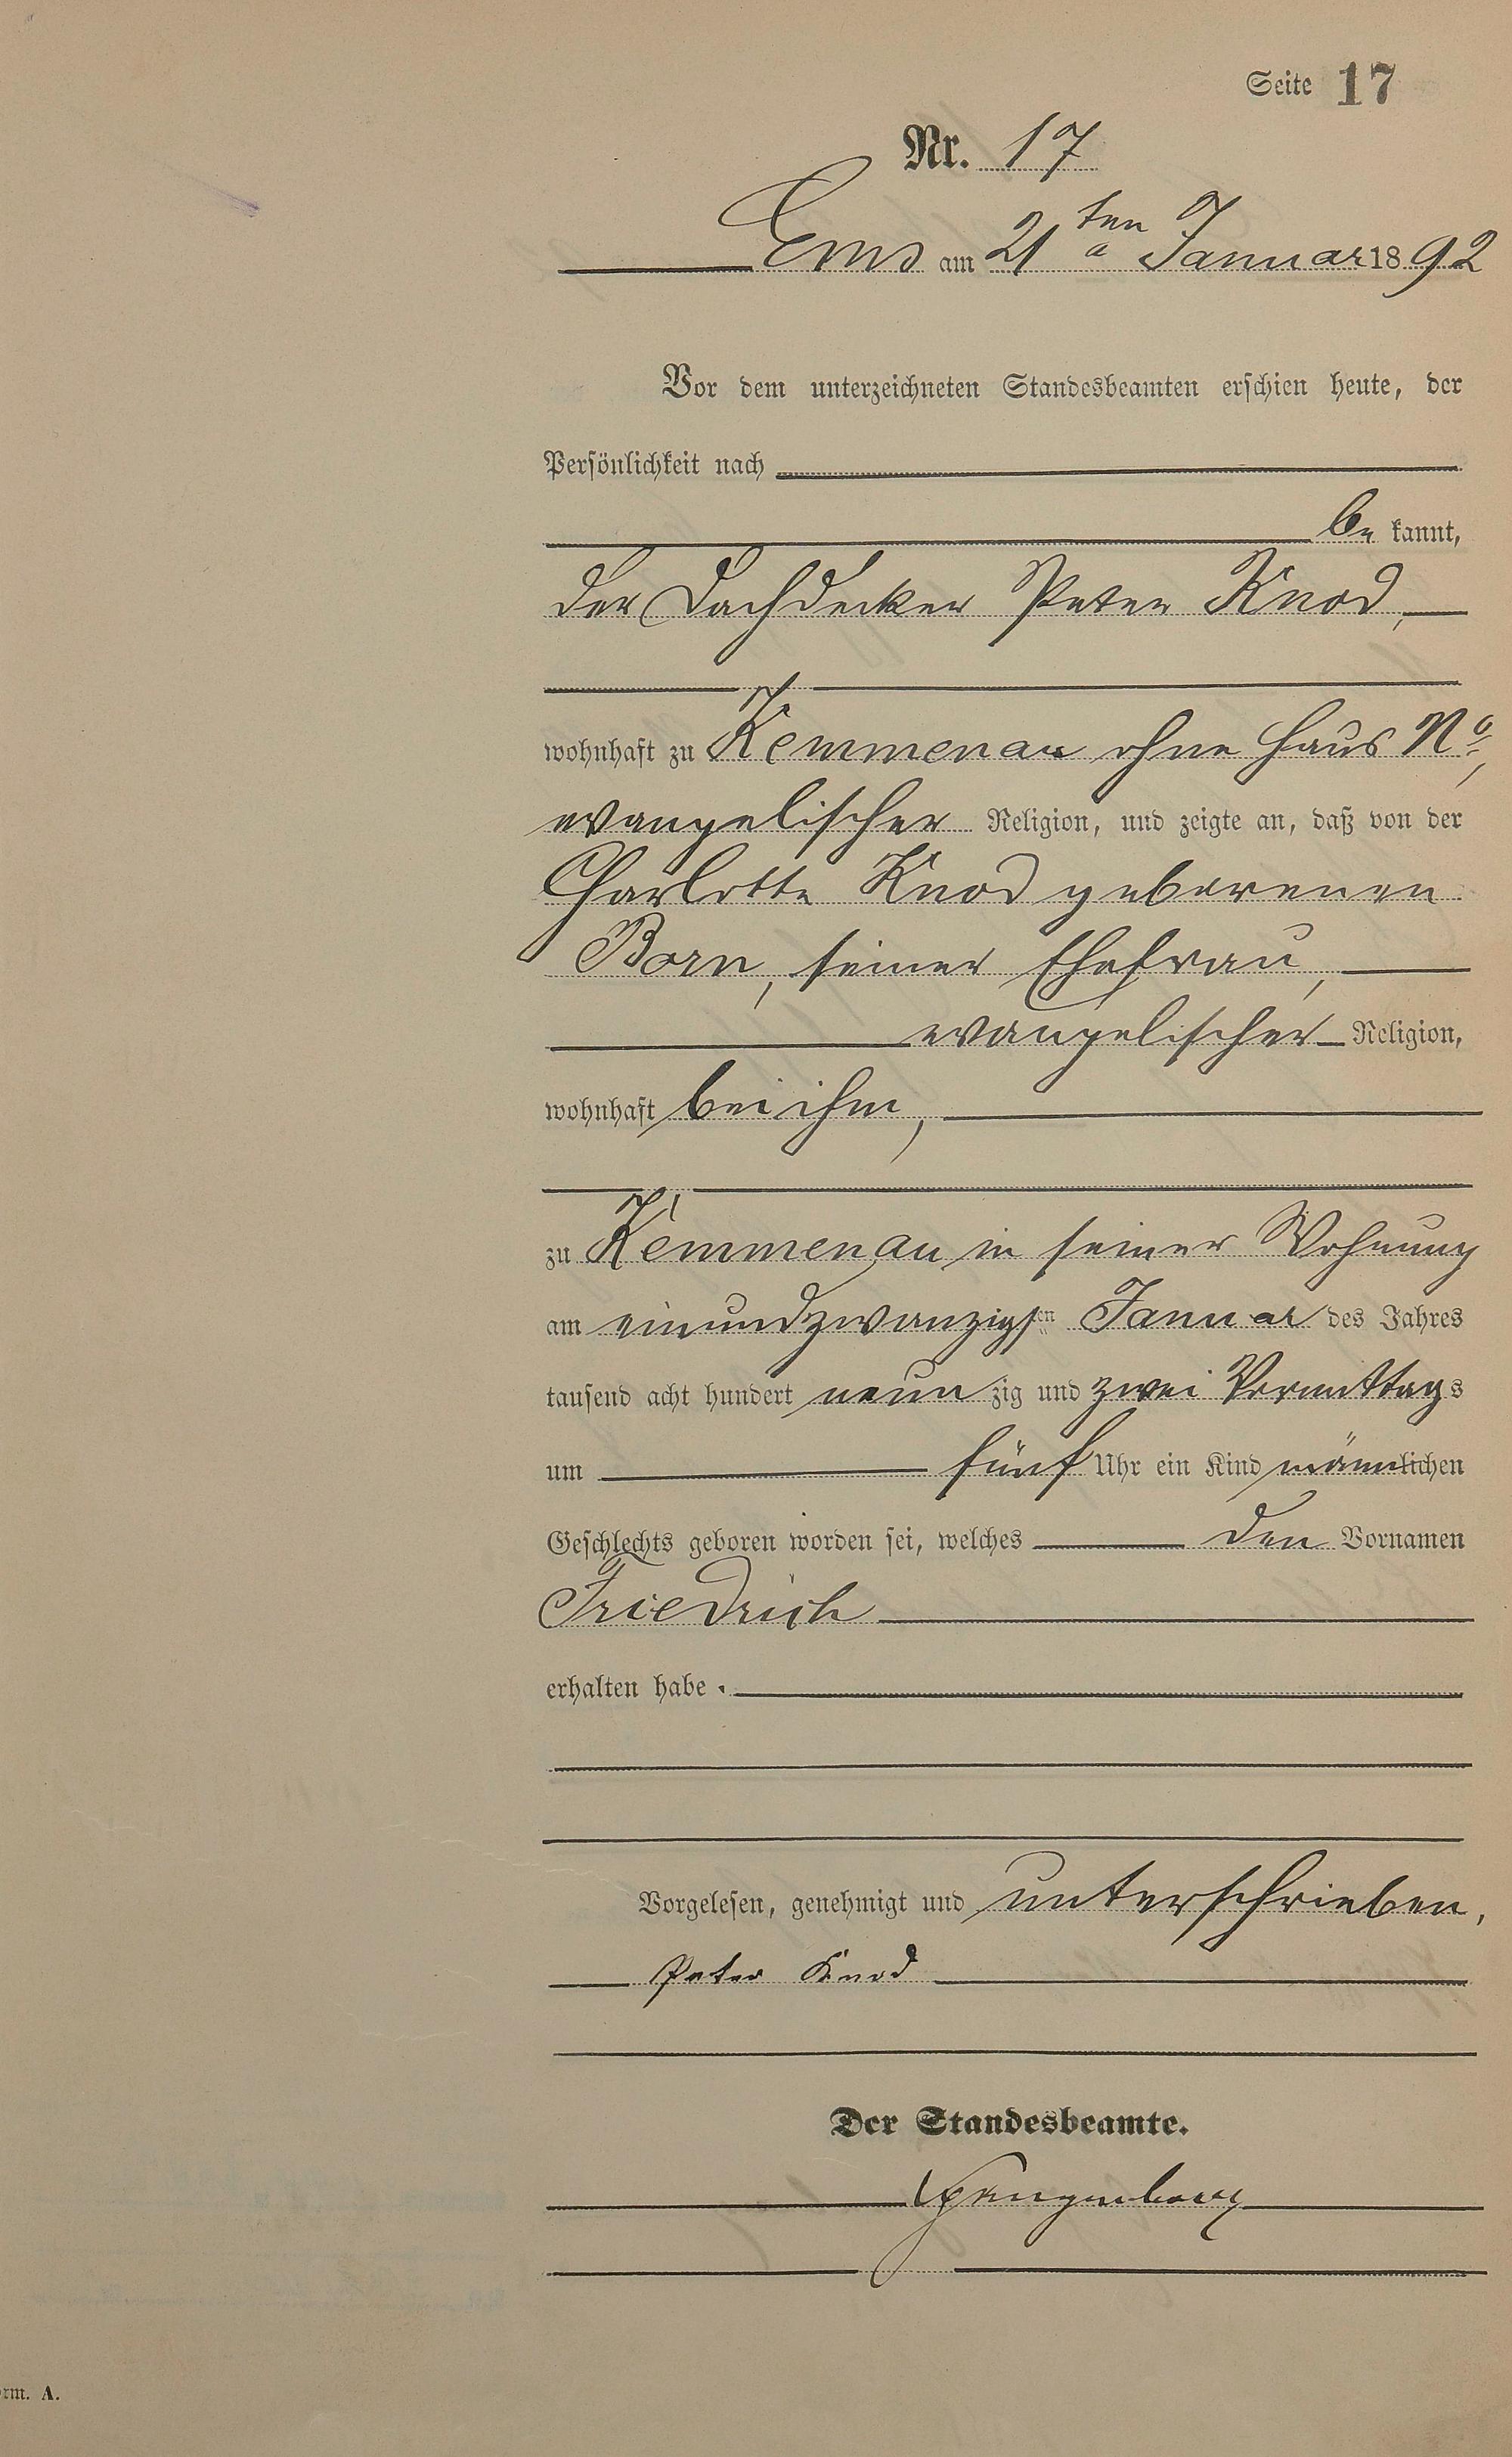 Seite 17
Nr. 17
Ems am 21ten Januar 1892
Vor dem unterzeichneten Standesbeamten erschien heute, der
Persönlichkeit nach
be kannt,
der Dachdecker Peter Knod,
wohnhaft zu Kemmenau ohne Haus No,
evangelischer Religion, und zeigte an, daß von der
Charlotte Knod geborenen
Born, seiner Ehefrau,
evangelischer Religion,
wohnhaft bei ihm,
zu Kemmenau in seiner Wohnung
am einundzwanzigsten Januar des Jahres
tausend acht hundert neun zig und zwei Vormittags
um fünf Uhr ein Kind männlichen
Geschlechts geboren worden sei, welches den Vornamen
Friedrich
erhalten habe.
Vorgelesen, genehmigt und unterschrieben,
Peter Knod
Der Standesbeamte.
orm. A.